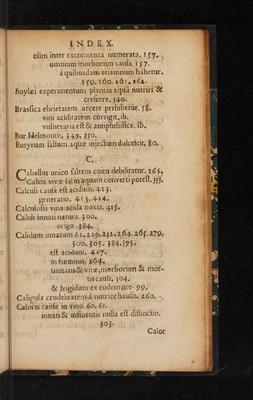 INDEX.
olim inter excrementa numerata, 157.
omnium morborum causa, 157.
à quibusdam etiamnum habetur.
159. 160. 161. 162.
Boylæi experimentum plantas aquâ nutriri &
crescere. 340.
Brassica ebrietatem arcere perhibetur. 58.
vini aciditatem corrigit, ib.
vulneraria est & antiphthisica. ib.
Bur Helmontii, 349. 350.
Butyrum saltum aquæ injectum dulcescit, 80.
C.
Caballus unico saltem coitu debilitatur. 265.
Calcis vivæ sal in aquam converti potest. 355.
Calculi causa est acidum. 413.
generatio. 413. 414.
Calculosis vina acida noxia. 415.
Calidi innati natura. 300.
origo 384.
Calidum innatum 61. 229. 231. 264. 265. 279.
300. 305. 384. 395.
est acidum. 417.
in fœminis, 264.
sanitatis & vitæ, morborum & mor-
tis causa. 304.
& frigidum ex eodem ore. 99.
Caligula crudelitatem à nutrice hausit. 260.
Caloris causa in vino. 60. 61.
innati & influentis nulla est distinctio.
303.
Calor